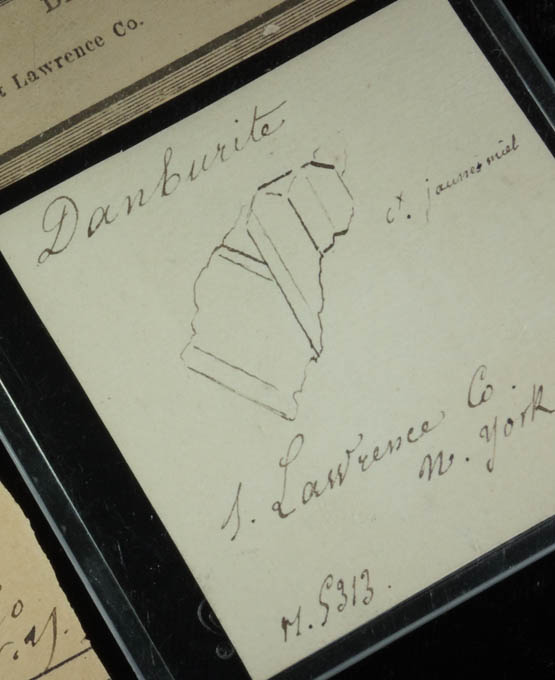 Lawrence Co.
Danburite
ct. jaunes miel
S. Lawrence Co.
N. York
M. 5313.